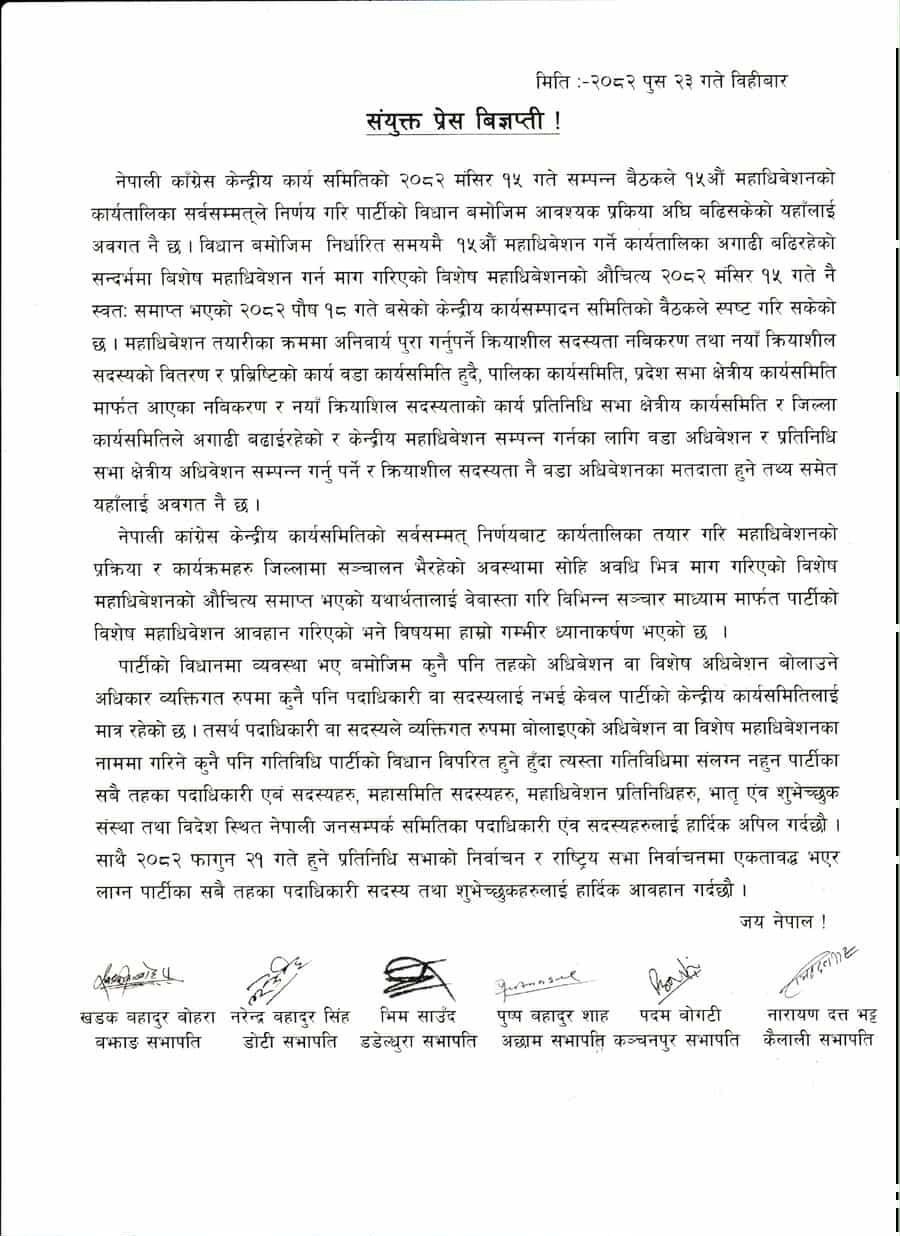 मिति :-२०८२ पुस २३ गते विहीबार
संयुक्त प्रेस बिज्ञप्ती !
नेपाली काँग्रेस केन्द्रीय कार्य समितिको २०८२ मंसिर १५ गते सम्पन्न बैठकले १५औं महाधिबेशनको
कार्यतालिका सर्वसम्मत्‌ले निर्णय गरि पार्टीको विधान बमोजिम आवश्यक प्रकिया अघि बढिसकेको यहाँलाई
अवगत नै छ । विधान बमोजिम निर्धारित समयमै १५औं महाधिबेशन गर्ने कार्यतालिका अगाढी बढिरहेको
सन्दर्भमा बिशेष महाधिवेशन गर्न माग गरिएको बिशेष महाधिबेशनको औचित्य २०८२ मंसिर १५ गते नै
स्वतः समाप्त भएको २०८२ पौष १८ गते बसेको केन्द्रीय कार्यसम्पादन समितिको वैठकले स्पष्ट गरि सकेको
छ । महाधिबेशन तयारीका क्रममा अनिवार्य पुरा गर्नुपर्ने क्रियाशील सदस्यता नविकरण तथा नयाँ क्रियाशील
सदस्यको वितरण र प्रब्रिष्टिको कार्य वडा कार्यसमिति हुदै, पालिका कार्यसमिति, प्रदेश सभा क्षेत्रीय कार्यसमिति
मार्फत आएका नबिकरण र नयाँ क्रियाशिल सदस्यताको कार्य प्रतिनिधि सभा क्षेत्रीय कार्यसमिति र जिल्ला
कार्यसमितिले अगाढी बढाईरहेको र केन्द्रीय महाधिबेशन सम्पन्न गर्नका लागि वडा अधिबेशन र प्रतिनिधि
सभा क्षेत्रीय अधिवेशन सम्पन्न गर्नु पर्ने र क्रियाशील सदस्यता नै वडा अधिबेशनका मतदाता हुने तथ्य समेत
यहाँलाई अवगत नै छ ।
नेपाली कांग्रेस केन्द्रीय कार्यसमितिको सर्वसम्मत् निर्णयबाट कार्यतालिका तयार गरि महाधिबेशनको
प्रक्रिया र कार्यक्रमहरु जिल्लामा सञ्चालन भैरहेको अवस्थामा सोहि अवधि भित्र माग गरिएको विशेष
महाधिबेशनको औचित्य समाप्त भएको यथार्थतालाई वेवास्ता गरि विभिन्न सञ्चार माध्याम मार्फत पार्टीको
विशेष महाधिवेशन आवहान गरिएको भने विषयमा हाम्रो गम्भीर ध्यानाकर्षण भएको छ ।
पार्टीको विधानमा व्यवस्था भए बमोजिम कुनै पनि तहको अधिबेशन वा विशेष अधिबेशन बोलाउने
अधिकार व्यक्तिगत रुपमा कुनै पनि पदाधिकारी वा सदस्यलाई नभई केवल पार्टीको केन्द्रीय कार्यसमितिलाई
मात्र रहेको छ । तसर्थ पदाधिकारी वा सदस्यले व्यक्तिगत रुपमा बोलाइएको अधिबेशन वा विशेष महाधिबेशनका
नाममा गरिने कुनै पनि गतिविधि पार्टीको विधान विपरित हुने हुँदा त्यस्ता गतिविधिमा संलग्न नहुन पार्टीका
सबै तहका पदाधिकारी एबं सदस्यहरु, महासमिति सदस्यहरु, महाधिवेशन प्रतिनिधिहरु, भातृ एंव शुभेच्छुक
संस्था तथा विदेश स्थित नेपाली जनसम्पर्क समितिका पदाधिकारी एंव सदस्यहरुलाई हार्दिक अपिल गर्दछौ ।
साथै २०८२ फागुन २१ गते हुने प्रतिनिधि सभाको निर्वाचन र राष्ट्रिय सभा निर्वाचनमा एकतावद्ध भएर
लाग्न पार्टीका सबै तहका पदाधिकारी सदस्य तथा शुभेच्छुकहरुलाई हार्दिक आवहान गर्दछौ ।
जय नेपाल !
खडक वहादुर वोहरा नरेन्द्र वहादुर सिंह भिम साउँद पुष्प वहादुर शाह पदम वोगटी नारायण दत्त भट्ट
बझाङ सभापति डोटी सभापति डडेल्धुरा सभापति अछाम सभापति कञ्चनपुर सभापति कैलाली सभापति